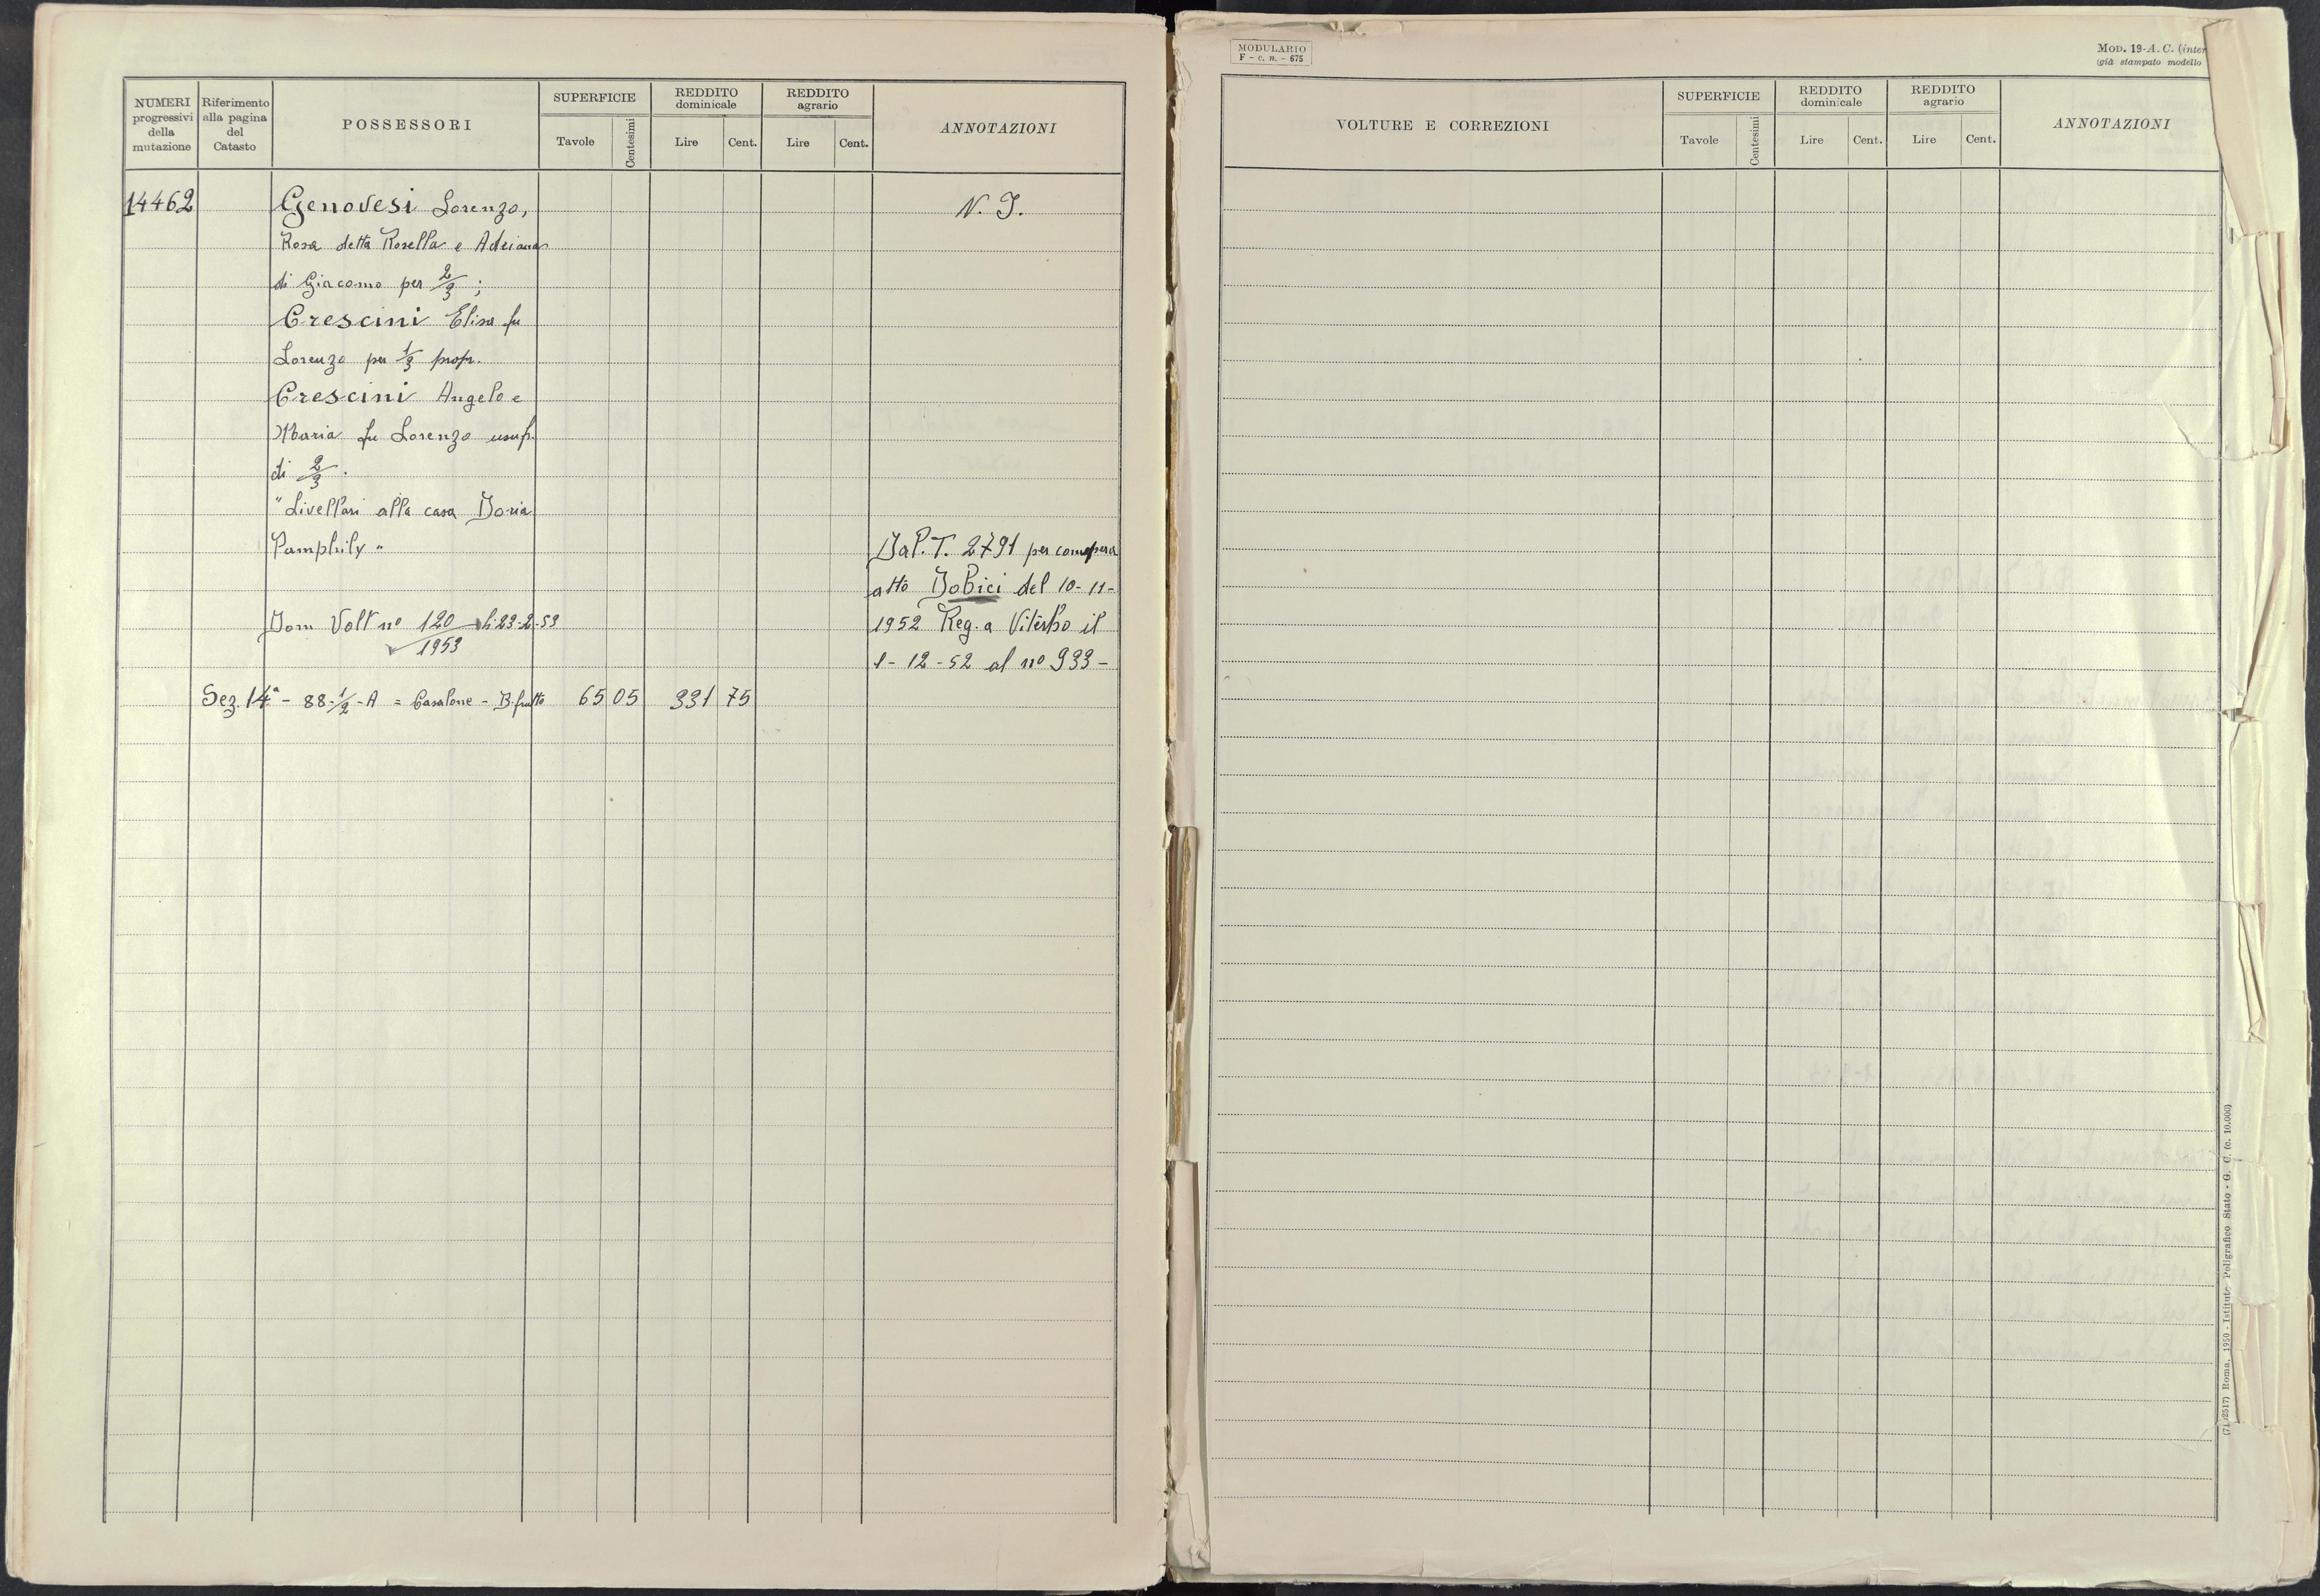 NUMERI progressivi della mutazione
Riferimento alla pagina del Catasto
POSSESSORI
SUPERFICIE
Tavole
Centesimi
REDDITO dominicale
Lire
Cent.
REDDITO agrario
Lire
Cent.
ANNOTAZIONI
14462
Genovesi Lorenzo,
N. I.
Rosa detta Rosella e Adriana
di Giacomo per 2/3 ;
Crescini Elisa fu
Lorenzo per 1/3 propr.
Crescini Angelo e
Maria fu Lorenzo usuf.
di 2/3.
"Livellari alla casa Doria
Pamphily"
Dal P.T. 2791 per compera
atto Dobici del 10-11-
1952 Reg. a Viterbo il
1-12-52 al nº 933-
Dom Volt nº 120/1953 li 23-2-53
Sez. 14ª - 88-1/2-A = Casalone - B. frutto 65 05 331 75
MODULARIO
F - c. n. - 675
MOD. 19-A. C. (inter
(già stampato modello
VOLTURE E CORREZIONI
SUPERFICIE
Tavole
Centesimi
REDDITO dominicale
Lire
Cent.
REDDITO agrario
Lire
Cent.
ANNOTAZIONI
(2517) Roma, 1950 - Istituto Poligrafico Stato - G. C. (c. 10.000)